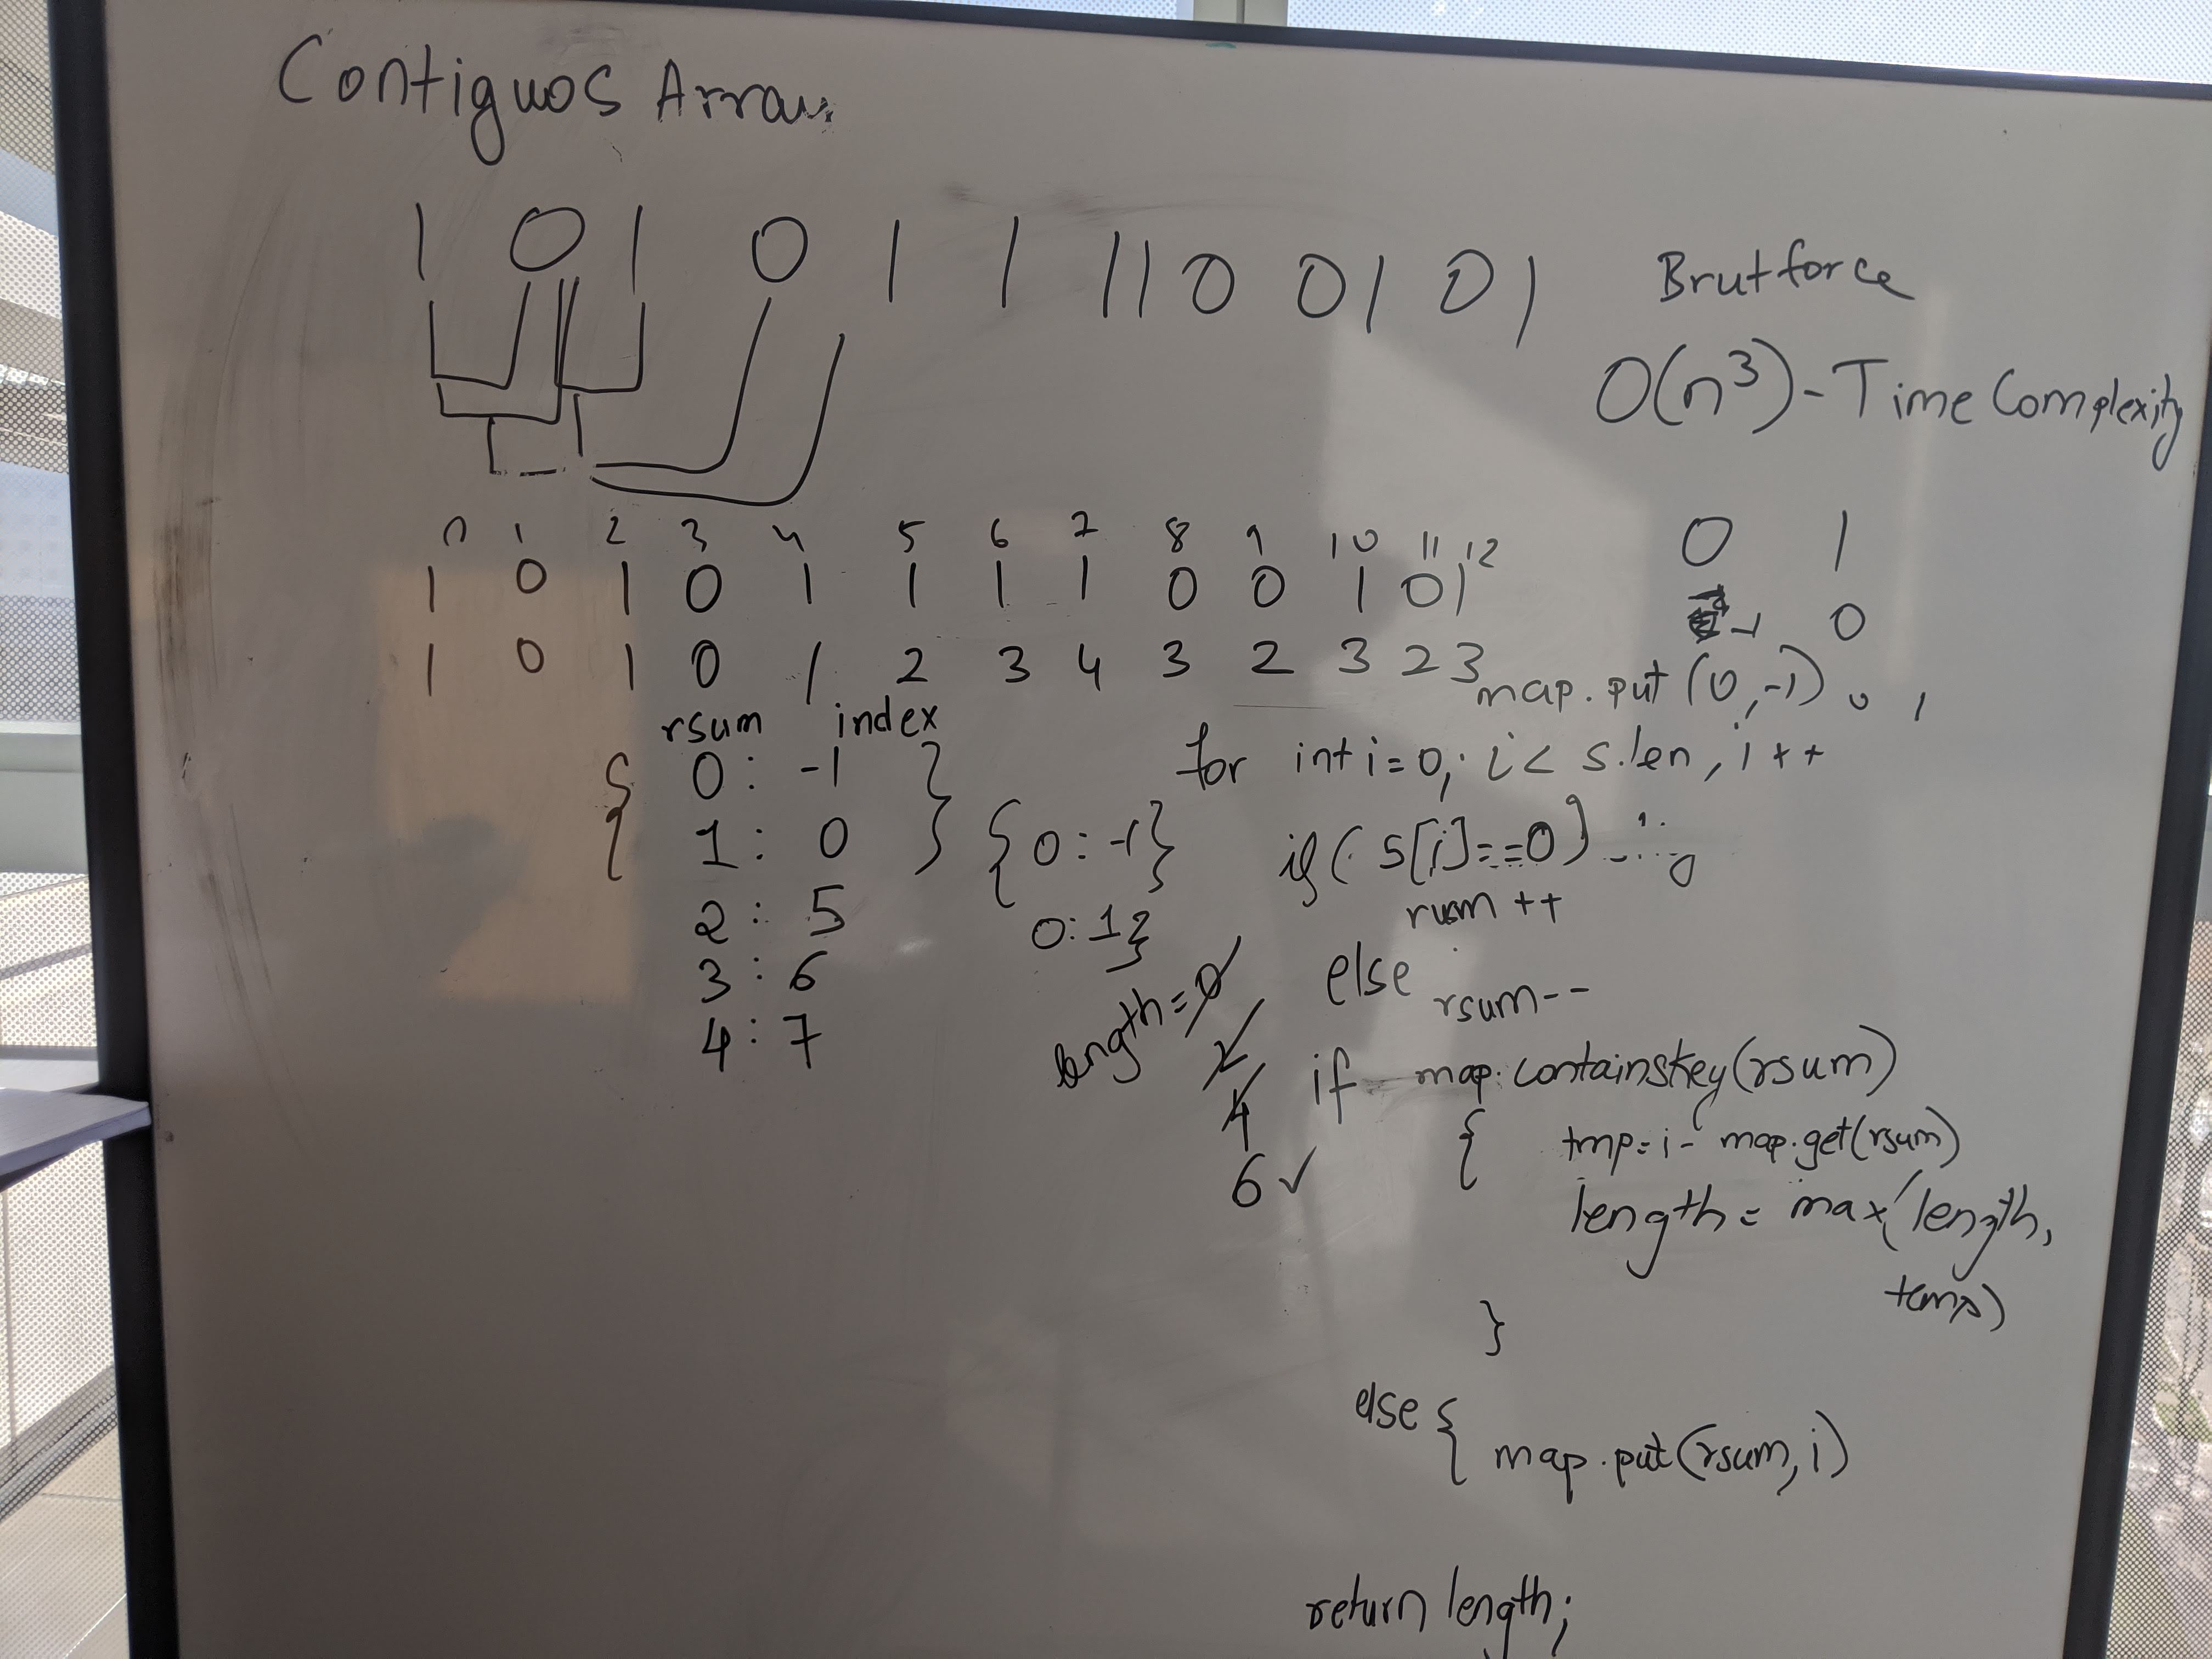 Contiguos Array
1 0 1 0 1 1 1 1 0 0 1 0 1
Brutforce
O(n³) - Time Complexity
0 1 2 3 4 5 6 7 8 9 10 11 12
1 0 1 0 1 1 1 1 0 0 1 0 1
1 0 1 0 1 2 3 4 3 2 3 2 3
0 1
-1 0
map.put (0,-1) 0 1
rsum index
{ 0 : -1 }
1 : 0
2 : 5
3 : 6
4 : 7
{0 : -1}
0:1}
length = 0
2
4
6 ✓
for int i=0; i < s.len, i++
if( s[i]==0)
rusm ++
else
rsum--
if map.containskey(rsum)
{ tmp = i - map.get(rsum)
length = max(length,
temp)
}
else {
map.put(rsum, i)
return length;